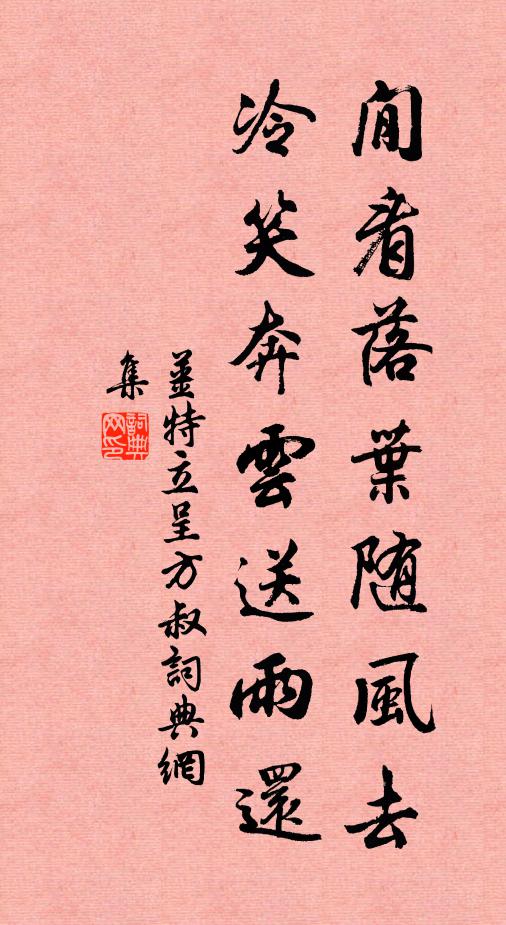 閒看落葉随風去
冷笑奔雲送雨還
姜特立呈方叔詞典網
集
詞典
网印